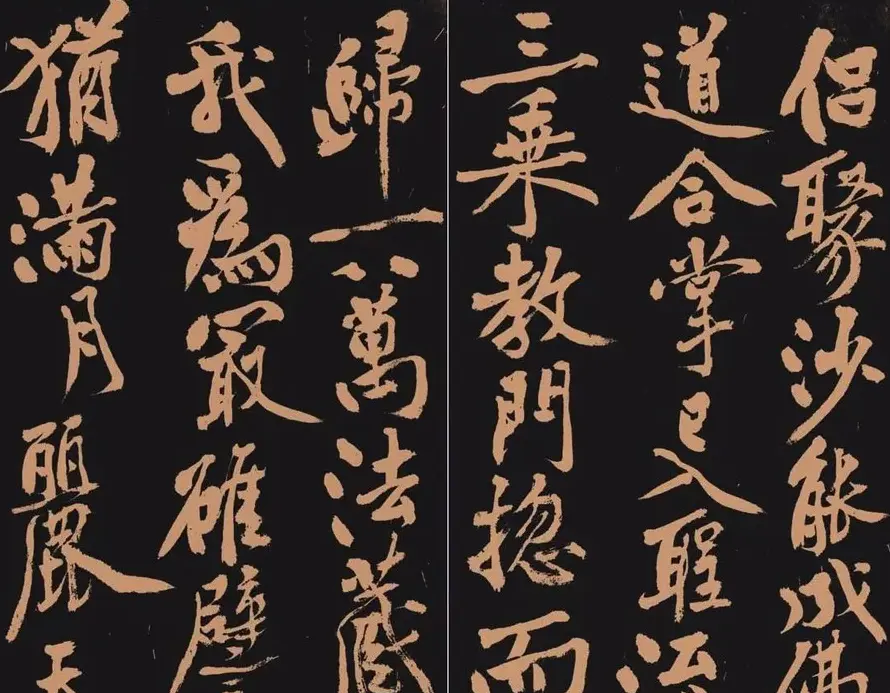 侶聚沙能成佛
道合掌已入聖流
三乘教門揔而
歸一八萬法藏
我為冣雄譬
猶滿月麗天